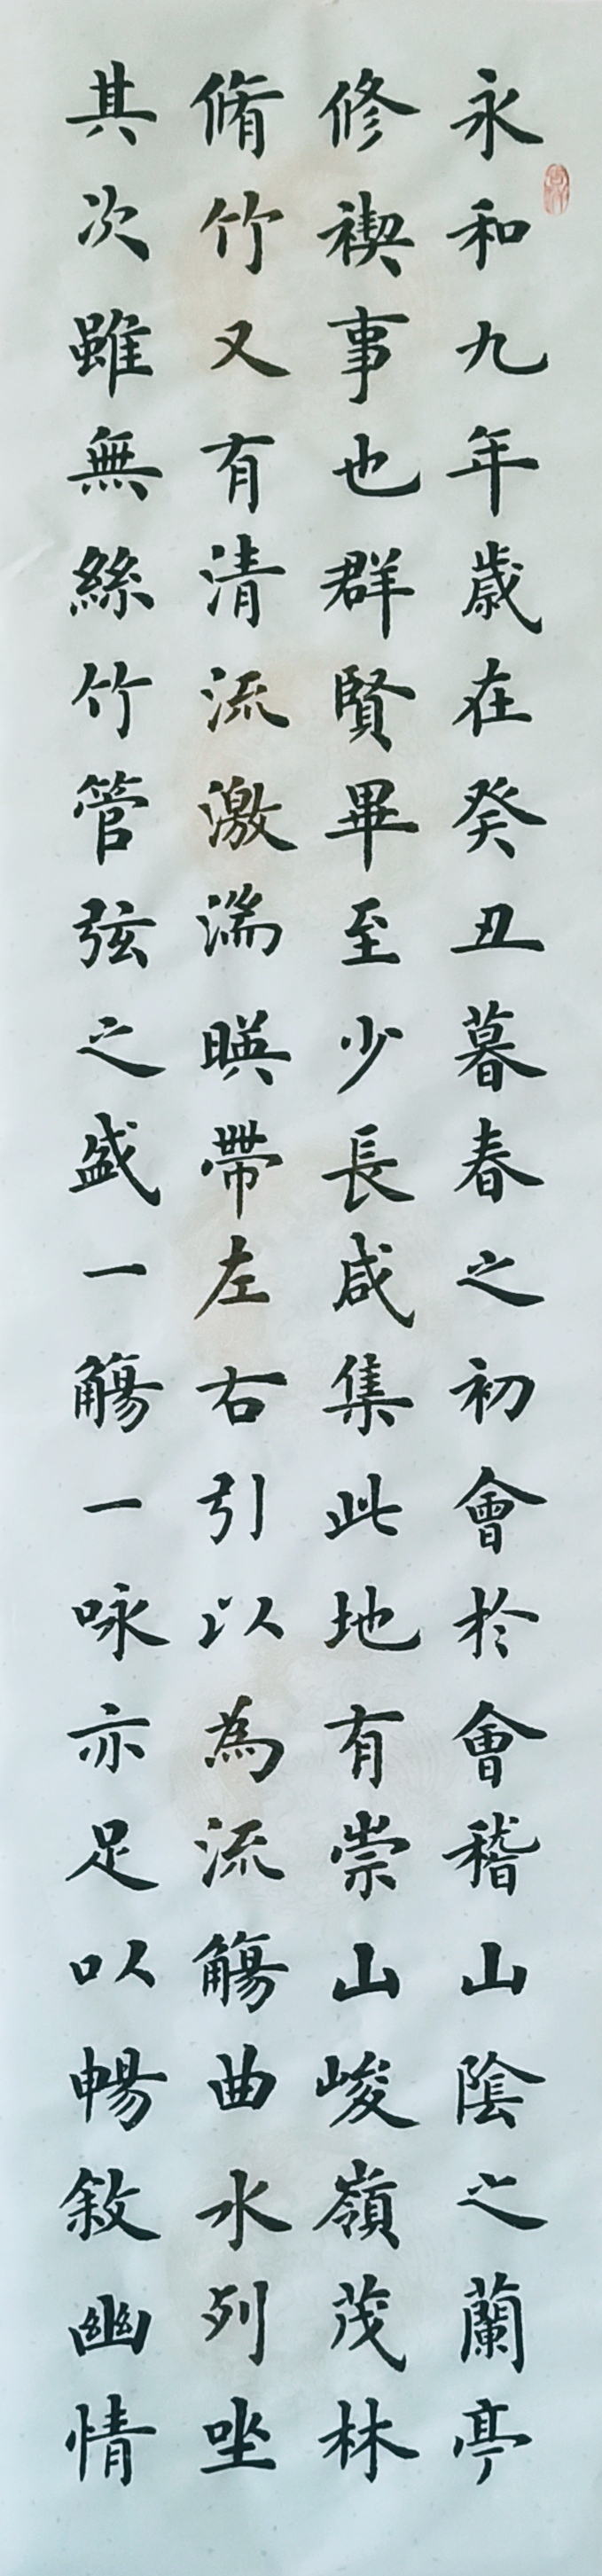 永和九年歲在癸丑暮春之初會於會稽山陰之蘭亭
修禊事也群賢畢至少長咸集此地有崇山峻嶺茂林
脩竹又有清流激湍暎帶左右引以為流觴曲水列坐
其次雖無絲竹管弦之盛一觴一咏亦足以暢敘幽情